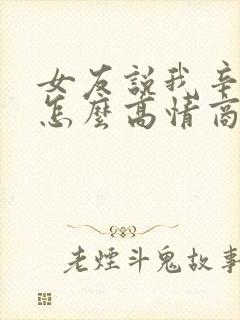 女友說我辛
怎麼高情商
老煙斗鬼故事